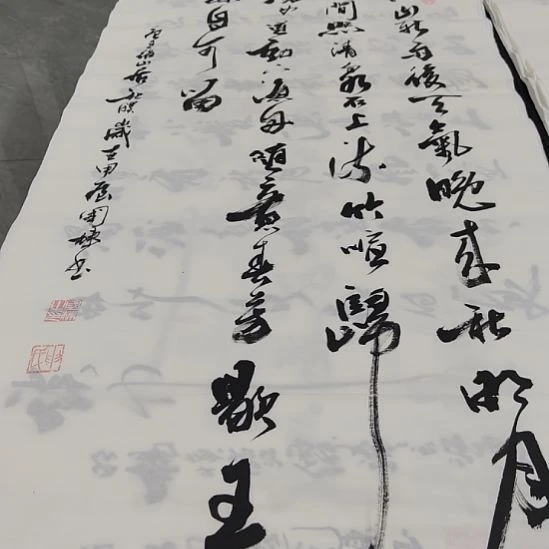 山新雨後天氣晚來秋明月
間照清泉石上流竹喧歸
蓮動下漁舟隨意春芳歇王
自可留
王維山居秋暝歲在甲辰周书